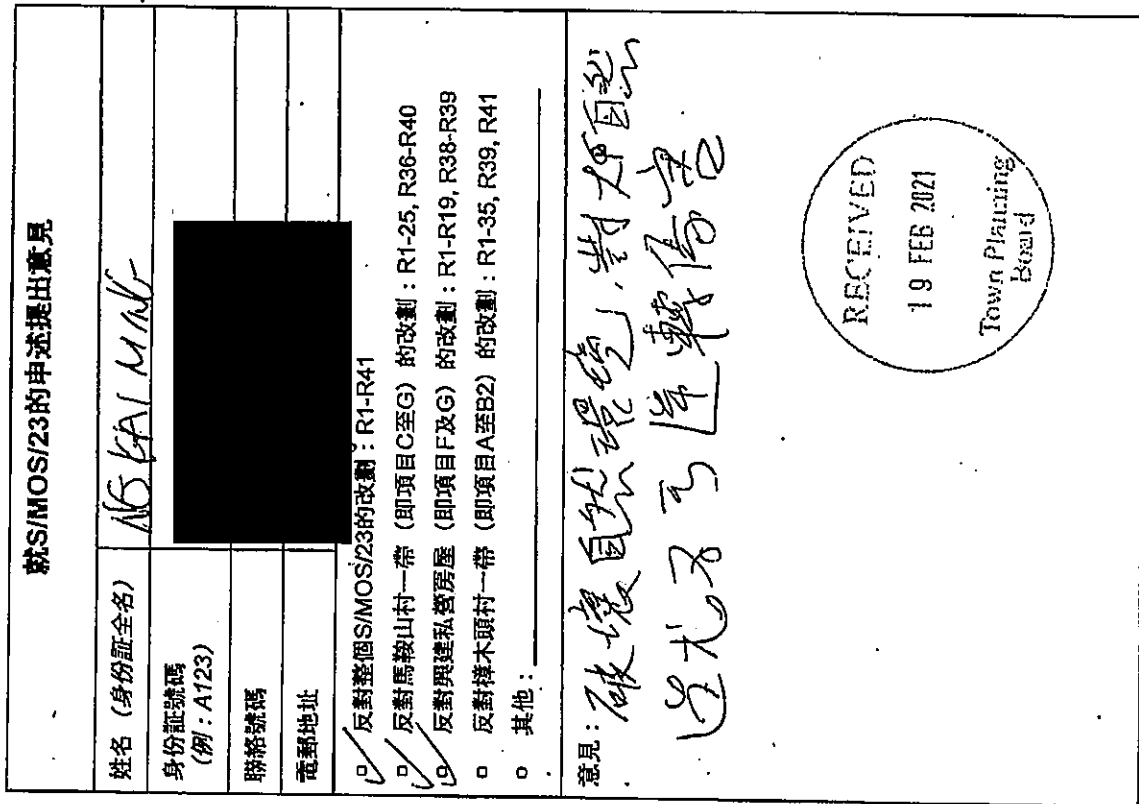 就S/MOS/23的申述提出意見
姓名 (身份証全名) NG KAI MING
身份証號碼
(例：A123)
聯絡號碼
電郵地址
反對整個S/MOS/23的改劃：R1-R41
反對馬鞍山村一帶 (即項目C至G) 的改劃：R1-25, R36-R40
反對興建私營房屋 (即項目F及G) 的改劃：R1-R19, R38-R39
反對樟木頭村一帶 (即項目A至B2) 的改劃：R1-35, R39, R41
其他：
意見：破壞自然環境，對大自然
造尤不可逆轉傷害
RECEIVED
19 FEB 2021
Town Planning
Board